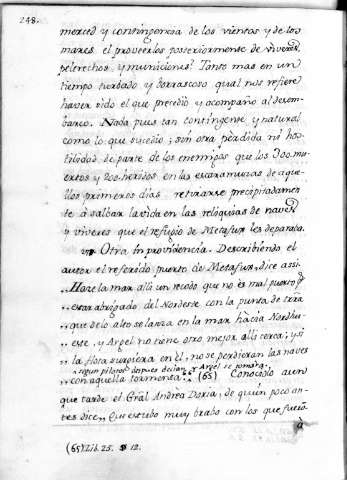 248.
merced y contingencia de los vientos y de los
mares el proveerlos posteriormente de viveres,
pelerechos, y municiones? Tanto mas en un
tiempo turbado y borrascoso qual nos refiere
haver sido el que precedio y acompaño al desem-
barco. Nada pues tan contingente, y natural
como lo que sucedio; sin otra pèrdida ni hos-
tilidad de parte de los enemigos que los 300 mu-
ertos y 200 heridos en las escaramuzas de aque-
llos primeros dias retirarse precipitadamen-
te à salbar la vida en las reliquias de naves
y viveres que el refugio de Metafuz les deparaba.
Otra improvidencia. Describiendo el
autor el referido puerto de Metafuz, dice assi.
"Haze la mar alli un recodo que no es mal puerto y
"està abrigado del Nordeste con la punta de tierra
"que de lo alto se lanza en la mar hàcia Nordhu-
"este, y Argel no tiene otro mejor alli cerca; y si
"la flota surgiera en èl, no se perdieran las naves
segun pilotos despues decian, y Argel se tomara
"con aquella tormenta: (65) Conociolo aun
que tarde el Gral Andrea Doria, de quien poco an-
tes dice, "Que estubo muy brabo con los que fueron
a
(65) Lib. 25. § 12.